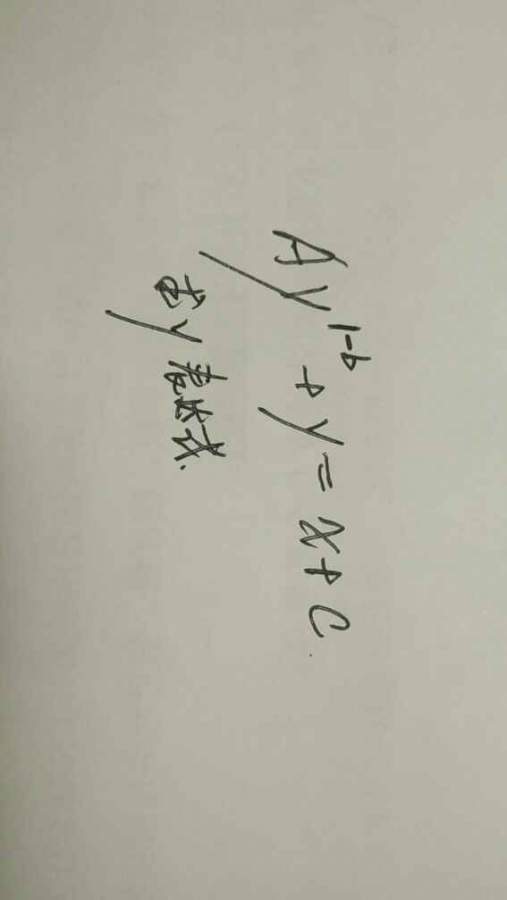 Ay^{1-b} + y = x + C.
求y表达式.